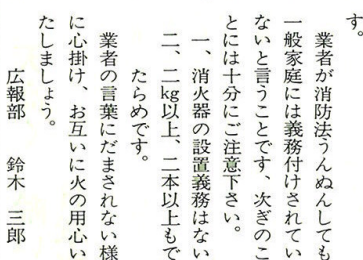 す。
業者が消防法うんぬんしても
一般家庭には義務付けされてい
ないと言うことです、次ぎのこ
とには十分にご注意下さい。
一、消火器の設置義務はない
二、二kg以上、二本以上もで
たらめです。
業者の言葉にだまされない様
に心掛け、お互いに火の用心い
たしましょう。
広報部　鈴木　三郎